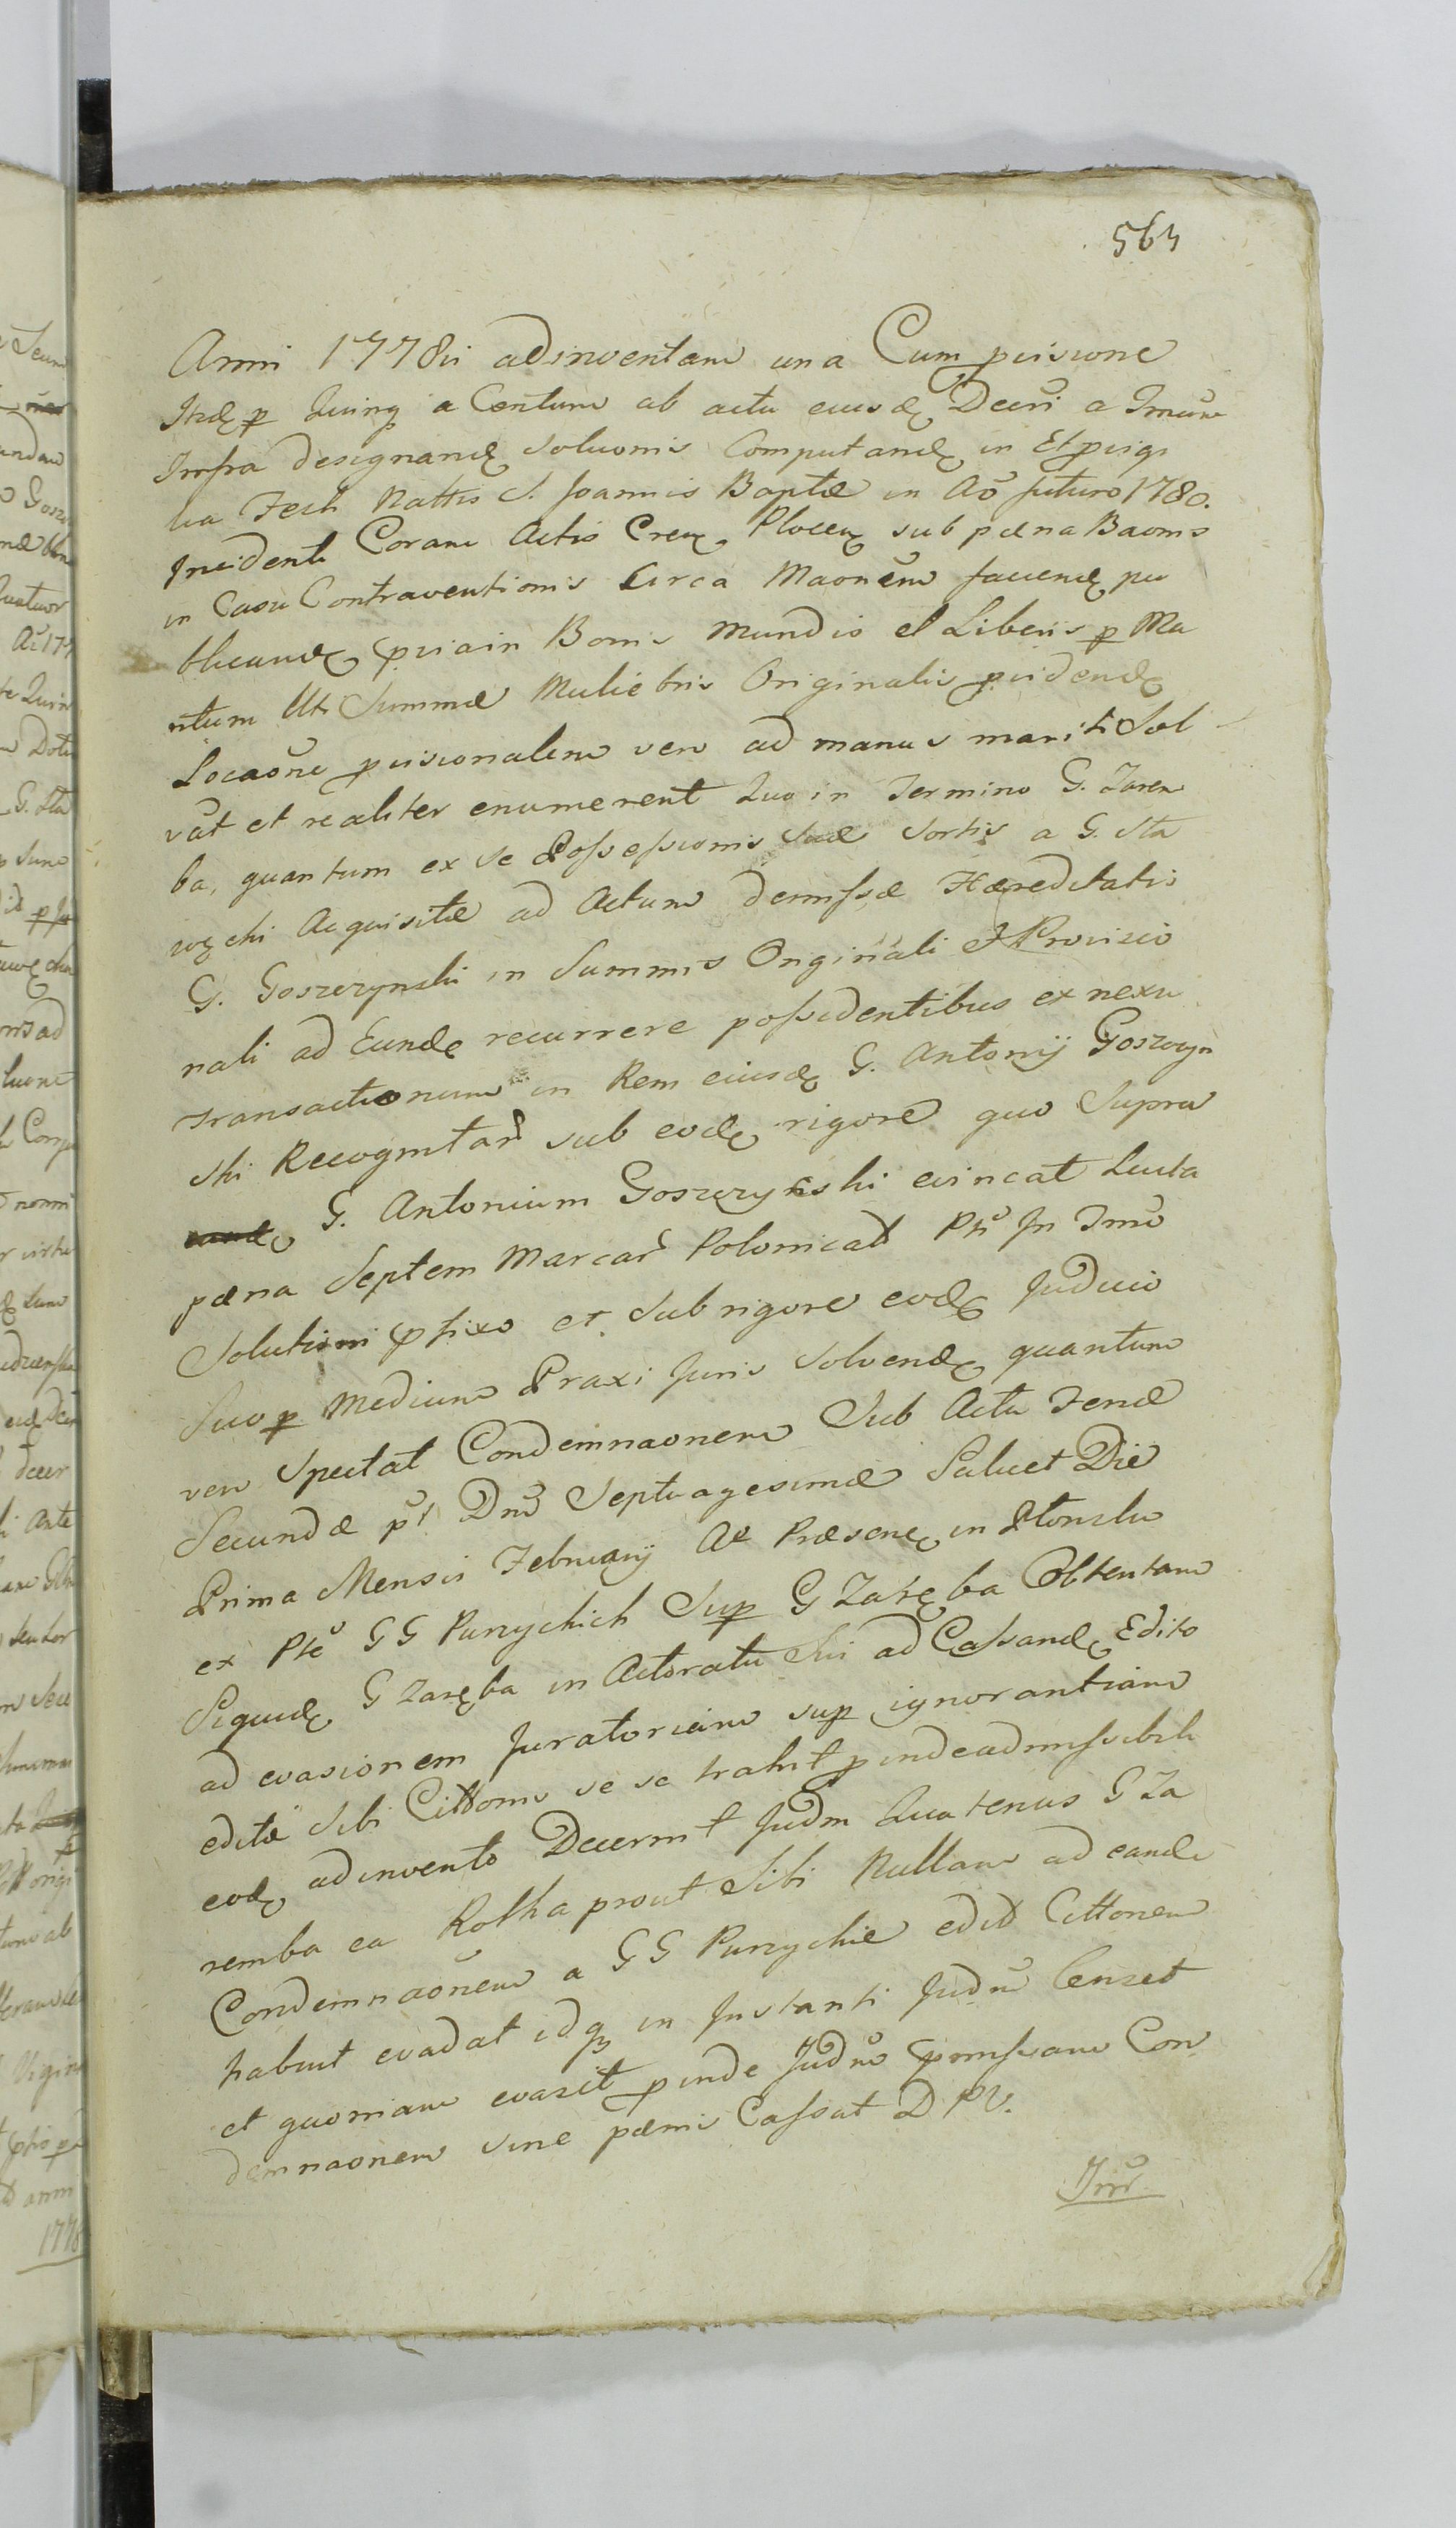 564
Anni 1778vi adinventam una Cum pvisione
Itidę p Quinq a Centum ab actu eiusdę Decri a Tmino
Infra designandę Soluonis Computandę in Et pvigi
lia Festi Nattis S. Joannis Baptæ in Aō futuro 1780.
Incidenti Coram Actis Crenę Plocenę sub pæna Baonis
in Casu Contraventionis Circa Maonēm faciendę pu
blicandę pviain Bonis Mundis et Liberis p Ma
ritum Uti Summæ Muliebris Originalis pvidendę
Locaōne pvisionalem vero ad manus mariti Sol
vāt et realiter enumerent Quo in Termino G. Zarem
ba, quantum ex se Possessionis Suæ Sortis a G. Sta
węski Acquisitæ ad Actum demissæ Hæreditatis
G. Goszczynski in Summis Originali et Provisio
nali ad Eundę recurrere possidentibus ex nexu
transactionum in Rem eiusdę G. Antonij Goszczyn
ski Recognitar sub eodę rigore quo Supra
G. Antonium Goszczynski evincat Lucta
pæna Septem Marcar Polonicał Ptī In Tmō
Solutioni pfixo et sub rigore eodę Judicio
Suo p Medium Praxi Juris Solvendę quantum
vero Spectat Condemnaonem Sub Actu Feriæ
Secundæ pt Dnō Septuagesimæ Scilicet Die
Prima Mensis February Ao Præsenę in Płonsku
ex Ptē GG Purzyckich Sup G Zaręba Obtentam
Siquidę G Zaręba in Actoratu Sui ad Cassandę Edito
ad evasionem Juratoriam sup ignorantiam
editæ Sibi Cittonis se se trahit pinde admissibili
eodę adinvento Decernit Judm Quatenus G Za
remba ea Rotha prout Sibi Nullam ad eandę
Condemnaōnem a GG Purzyckie edit Cittonem
habuit evadat idq in Instanti Judm Censet
et quoniam evasit pinde Judm pmissam Con
demnaonem sine pænis Cassat D P V.